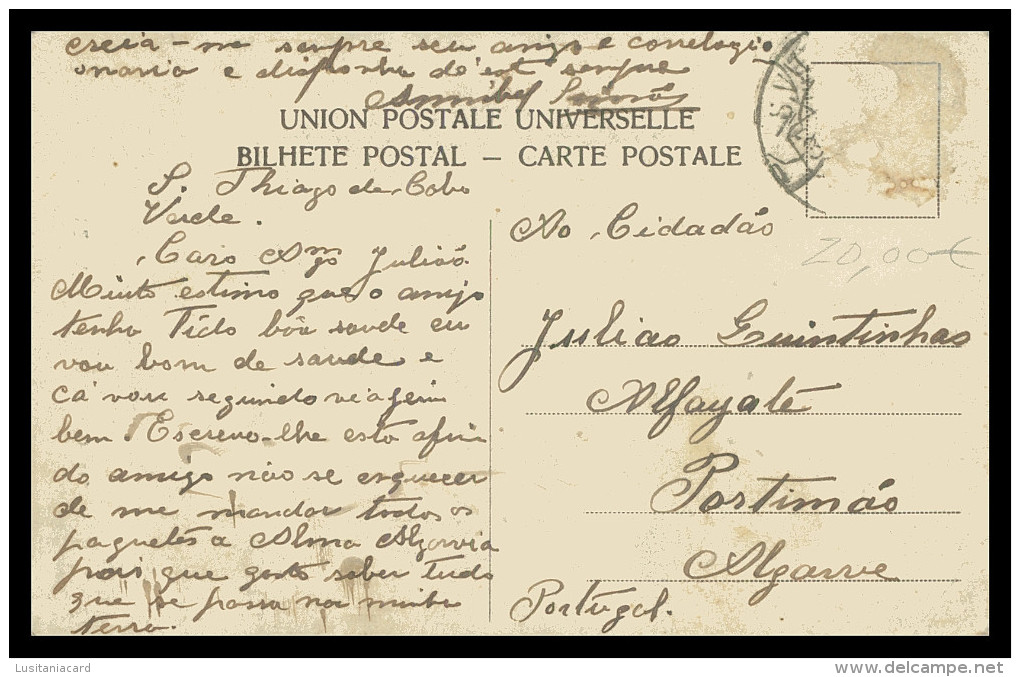 creia-me sempre seu amigo e correlegio
nario e disponha d'est sempre
Annibal
UNION POSTALE UNIVERSELLE
BILHETE POSTAL – CARTE POSTALE
S. Thiago de Cobo
Verde.
Caro Amgo Julião
Muito estimo que o amigo
tenha Tido bôa saude eu
vou bom de saude e
cá vou seguindo viagem
bem. Escrevo-lhe esta afim
do amigo não se esquecer
de me mandar todos os
paquetes a Alma Algarvia
pois que gosto saber tudo
que se passa na minha
terra.
Ao Cidadão
Juliao Quintinhas
Alfayate
Portimão
Algarve
Portugal.
20,00€
Lusitaniacard
http://www.delcampe.net